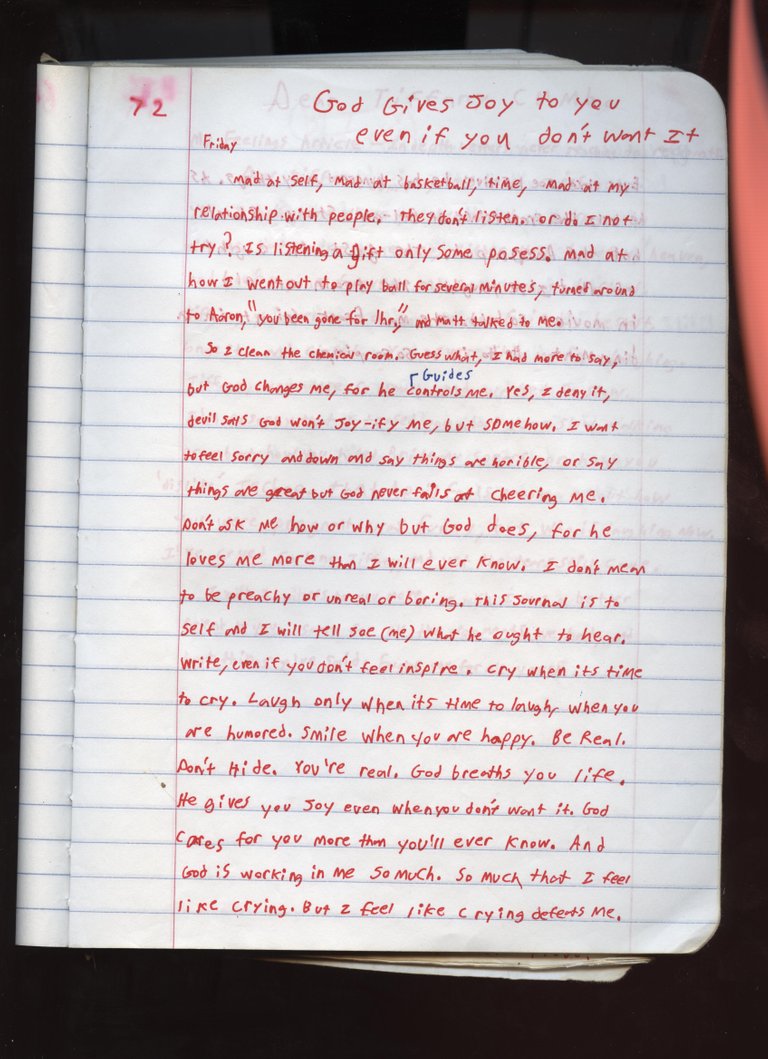 72
God Gives Joy to you
even if you don't want It
Friday
Mad at self, mad at basketball, time, mad at my
relationship with people. They don't listen. or do I not
try? Is listening a gift only some posess. Mad at
how I went out to play ball for several minutes, turned around
to Aaron, "you been gone for 1hr," and Matt talked to me.
So I clean the chemical room. Guess what, I had more to say,
Guides
but God changes me, for he controls me. Yes, I deny it,
devil says God won't Joy-ify me, but somehow. I want
to feel sorry and down and say things are horible, or say
things are great but God never fails at cheering me.
Don't ask me how or why but God does, for he
loves me more than I will ever know. I don't mean
to be preachy or unreal or boring. This Journal is to
self and I will tell Joe (me) what he ought to hear.
Write, even if you don't feel inspire. Cry when its time
to cry. Laugh only when it's time to laugh, when you
are humored. Smile when you are happy. Be Real.
Don't Hide. You're real. God breaths you life.
He gives you Joy even when you don't want it. God
Cares for you more than you'll ever know. And
God is working in me so much. So much that I feel
like crying. But I feel like crying defeats me.